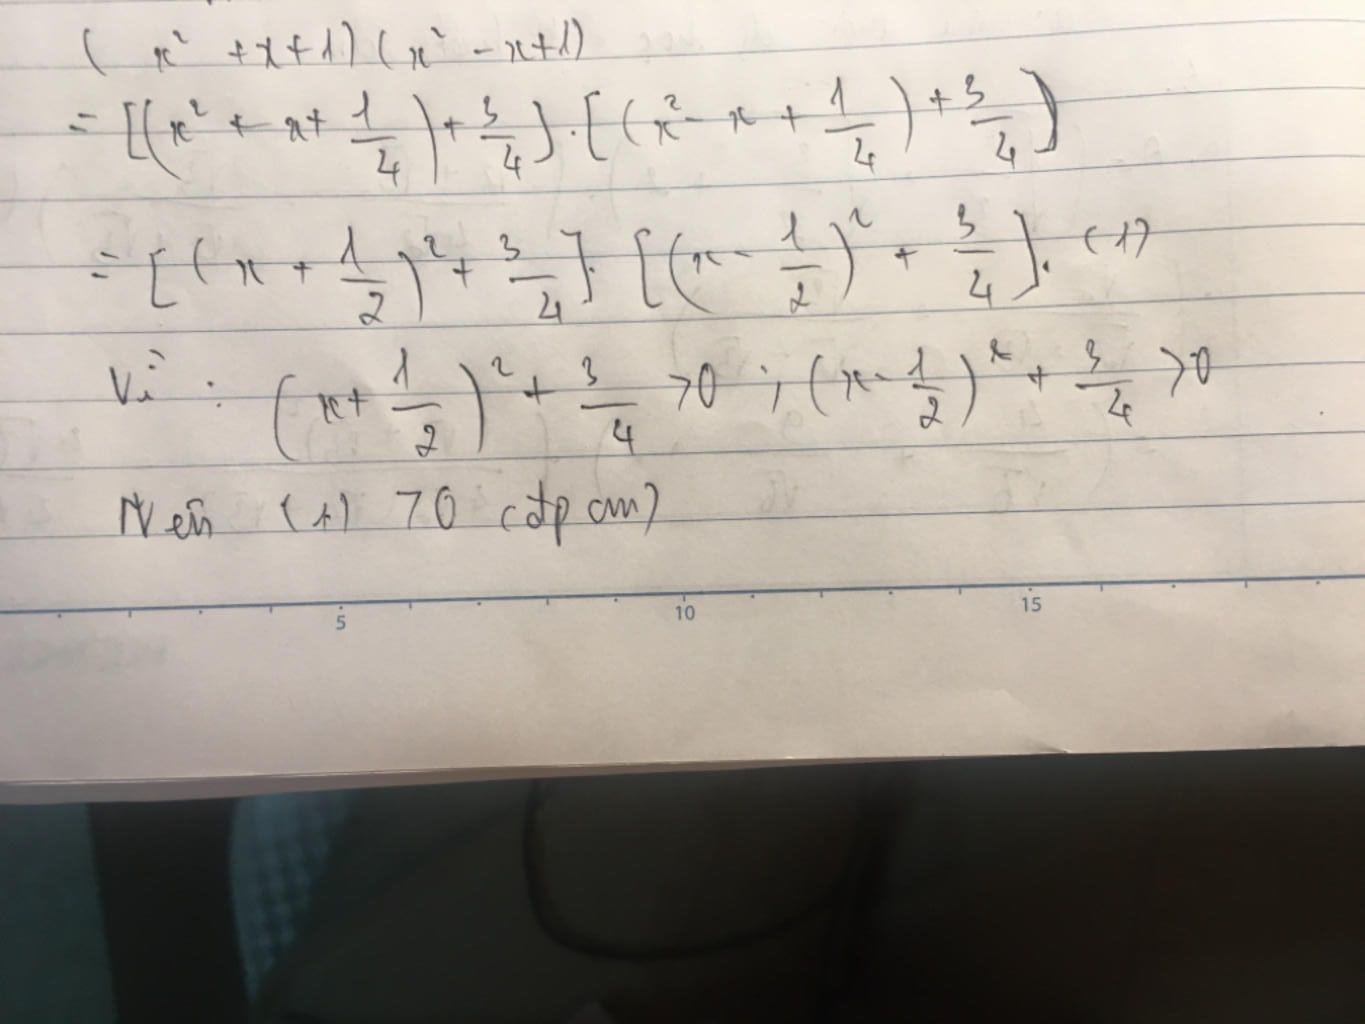 ( x² + x + 1) ( x² - x + 1)
= [(x² + x + 1/4) + 3/4] . [(x² - x + 1/4) + 3/4]
= [(x + 1/2)² + 3/4] . [(x - 1/2)² + 3/4]. (1)
Vì : (x + 1/2)² + 3/4 > 0 ; (x - 1/2)² + 3/4 > 0
Nên (1) > 0 (đpcm)
5 10 15